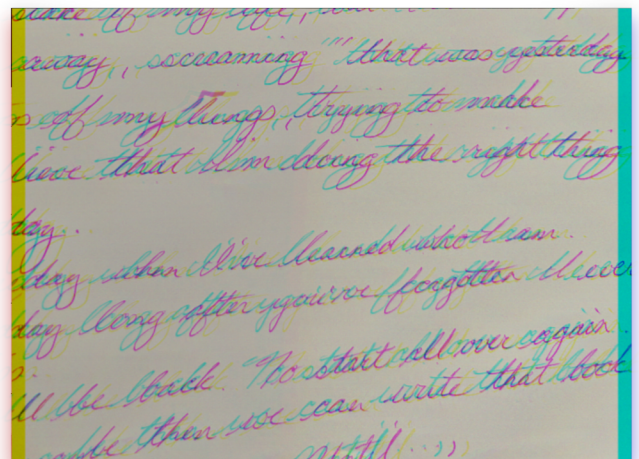 sake of my
away, screaming "" that was yesterday
of my things, trying to make
lieve that I'm doing the right thing
day..
day when I've learned who I am.
day long after you've forgotten I ever
ll be back. To start all over again.
be then we can write that book
until